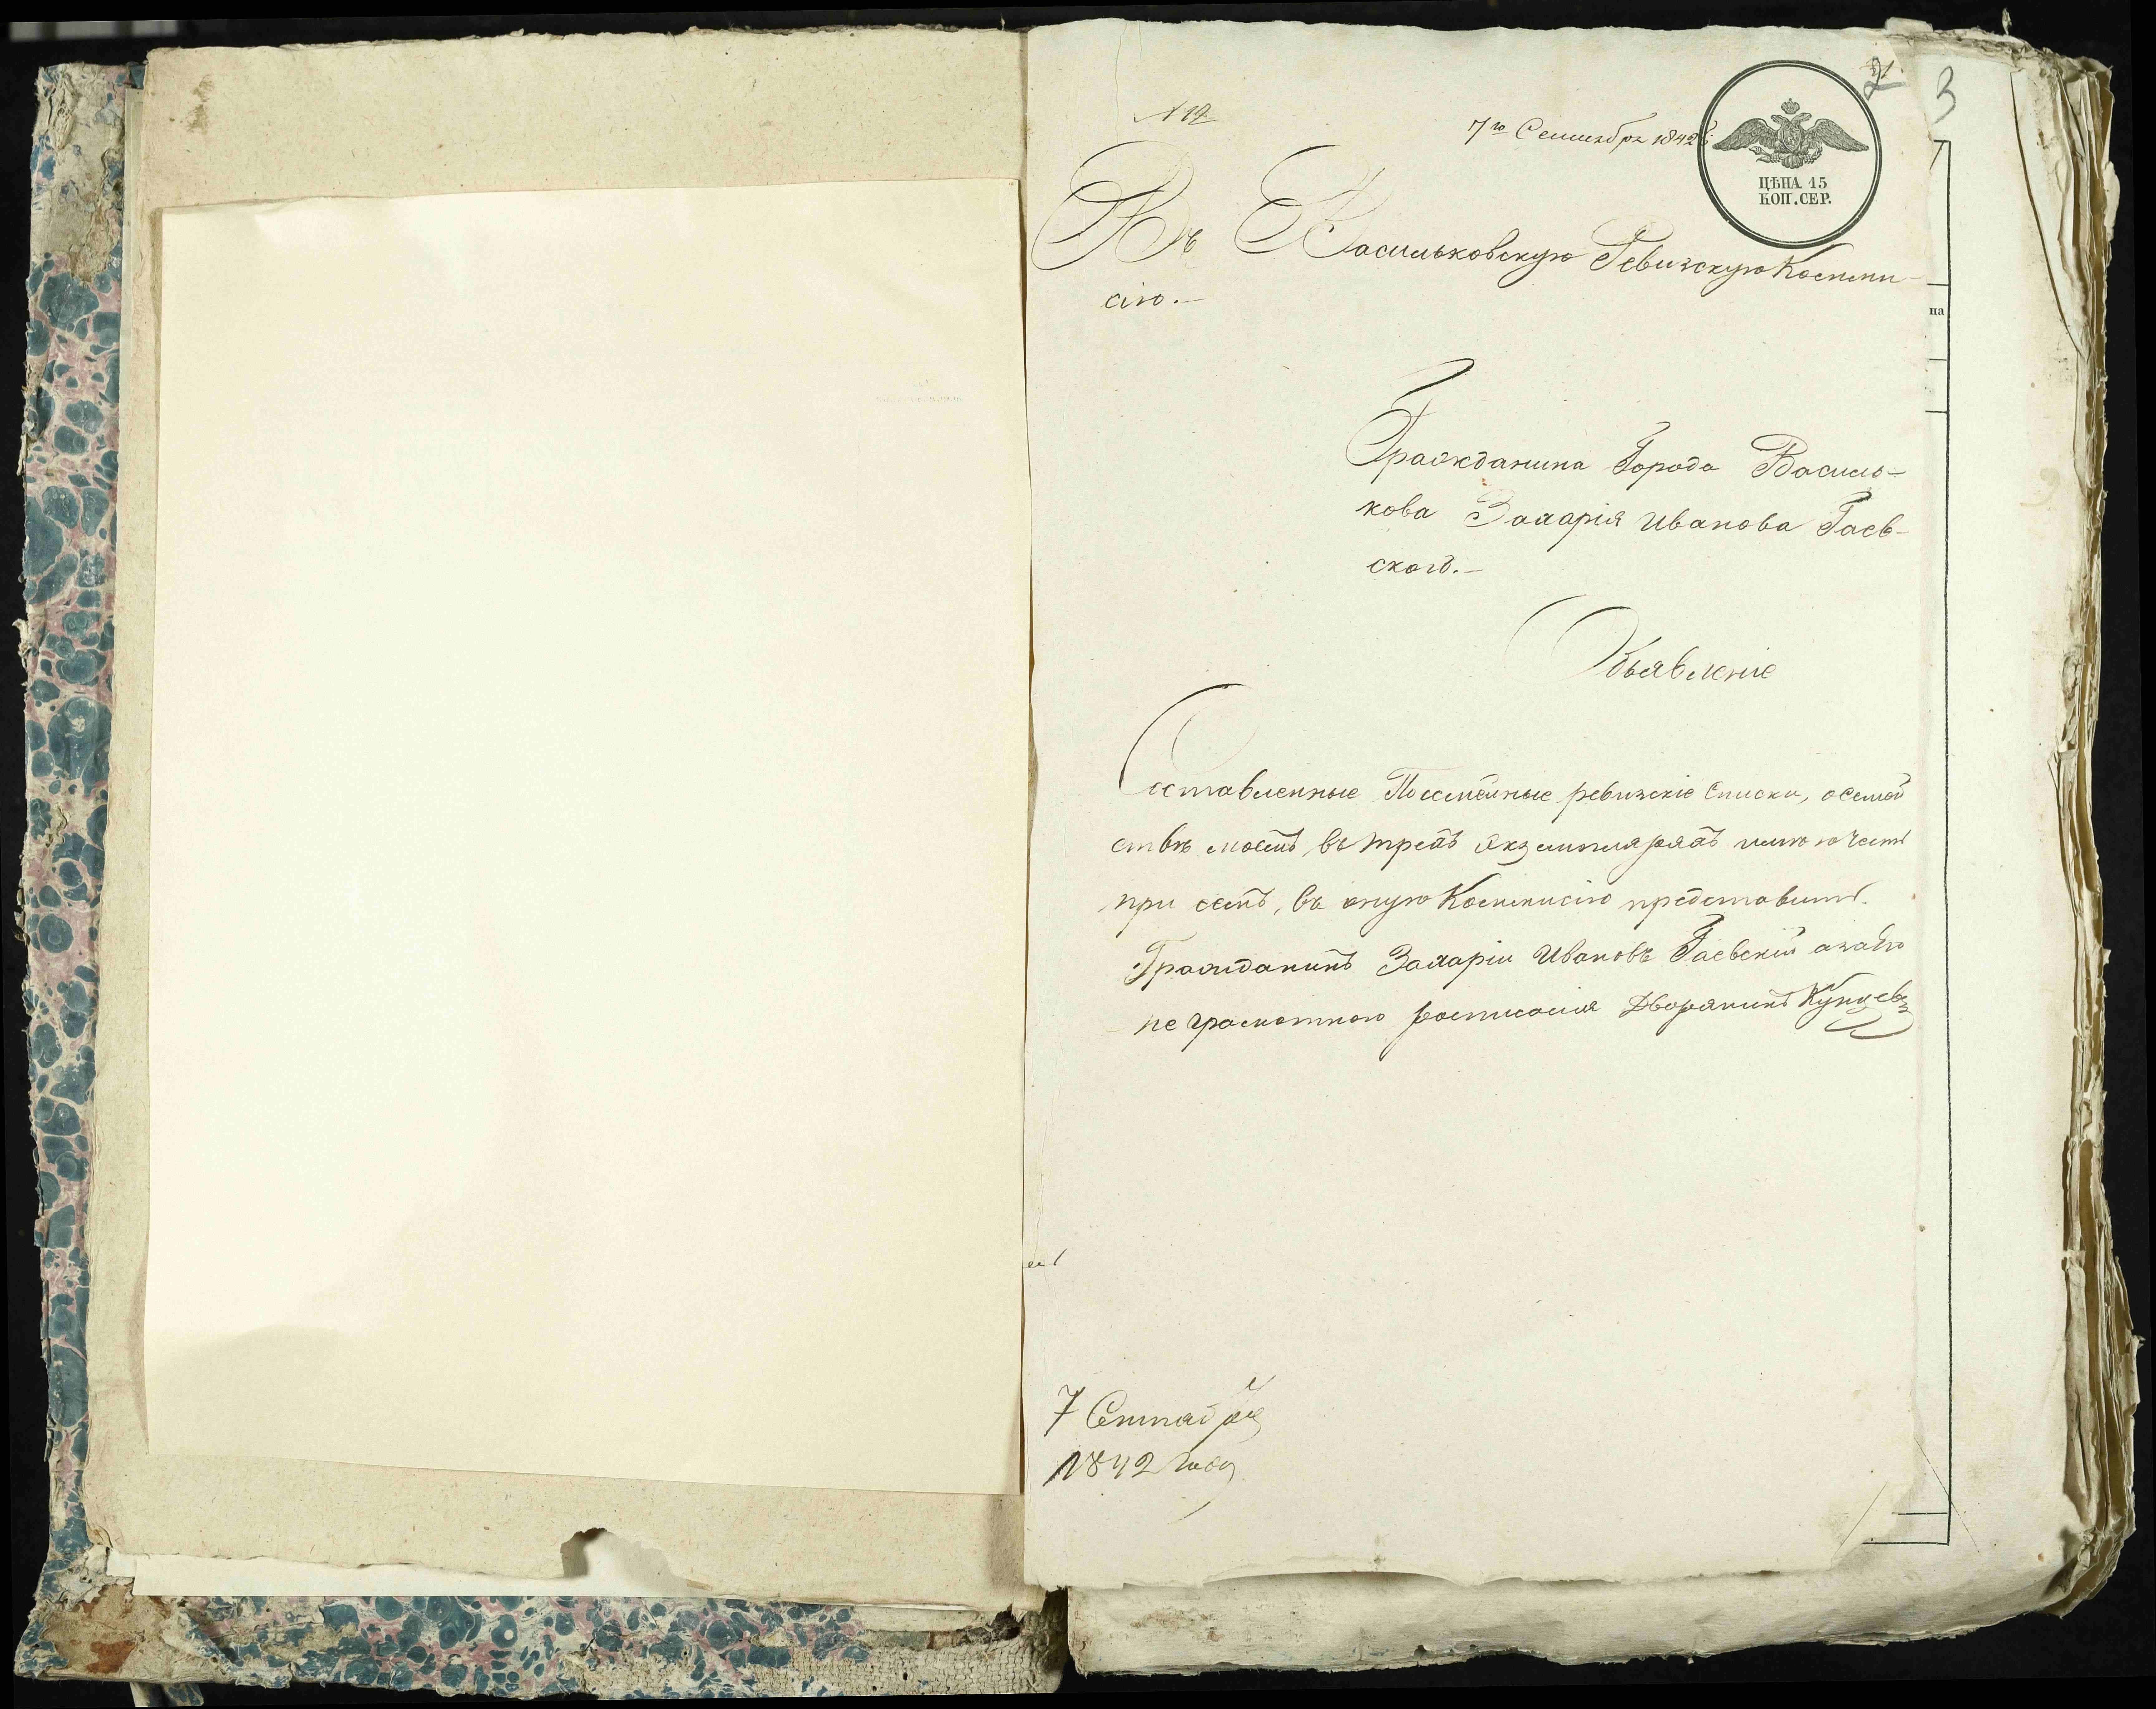 2
3
№ 12
7го Сентября 1842 г.
ЦѢНА 15
КОП. СЕР.
Въ Васильковскую Ревизскую Комми-
сію.-
на
Гражданина Города Василь-
кова Захарія Иванова Гаев-
ского.-
Объявленіе
Составленные Посемейные ревизскіе списки, о семей
ствѣ моемъ въ трехъ экземплярахъ имею честь
при семъ, въ оную Коммисію представить.
Гражданинъ Захарій Ивановъ Гаевскій а за его
не грамотного росписался Дворянинъ
7 Сентября
1842 года